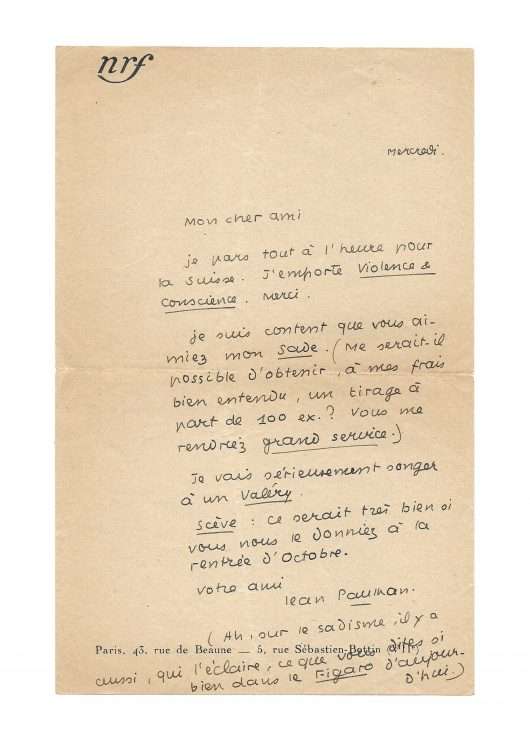 nrf
Mercredi.
Mon cher ami
je pars tout à l'heure pour
la Suisse. J'emporte Violence &
Conscience. Merci.
je suis content que vous ai-
miez mon Sade. (Me serait-il
possible d'obtenir, à mes frais
bien entendu, un tirage à
part de 100 ex.? Vous me
rendriez grand service.)
Je vais sérieusement songer
à un Valéry.
Scève : ce serait très bien si
vous nous le donniez à la
rentrée d'Octobre.
votre ami
Jean Paulhan.
(Ah, sur le sadisme, il y a
Paris, 43, rue de Beaune — 5, rue Sébastien-Bottin
aussi, qui l'éclaire, ce que vous dites si
bien dans le Figaro d'aujour-
d'hui.)